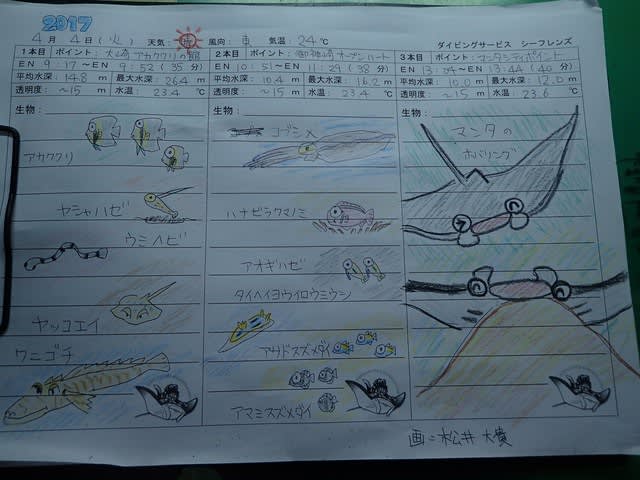 2017
4月 4日 (火) 天気: 風向: 東 気温: 24℃ ダイビングサービス シーフレンズ
1本目 ポイント: 大崎 アカククリの館
EN 9:17～EN 9:52 (35分)
平均水深: 14.8 m 最大水深: 26.4 m
透明度: ～15 m 水温: 23.4 ℃
生物:
アカククリ
ヤシャハゼ
ウミヘビ
ヤッコエイ
ワニゴチ
2本目 ポイント: 御神崎 オープンハート
EN 10:51～EN 11:29 (38分)
平均水深: 10.4 m 最大水深: 16.2 m
透明度: ～15 m 水温: 23.4 ℃
生物:
コブシメ
ハナビラクマノミ
アオギハゼ
タイヘイヨウイロウミウシ
アサドスズメダイ
アマミスズメダイ
3本目 ポイント: マンタシティポイント
EN 13:04～EN 13:44 (40分)
平均水深: 10.0 m 最大水深: 12.0 m
透明度: ～15 m 水温: 23.6 ℃
生物:
マンタの
ホバリング
画=松井 大貴